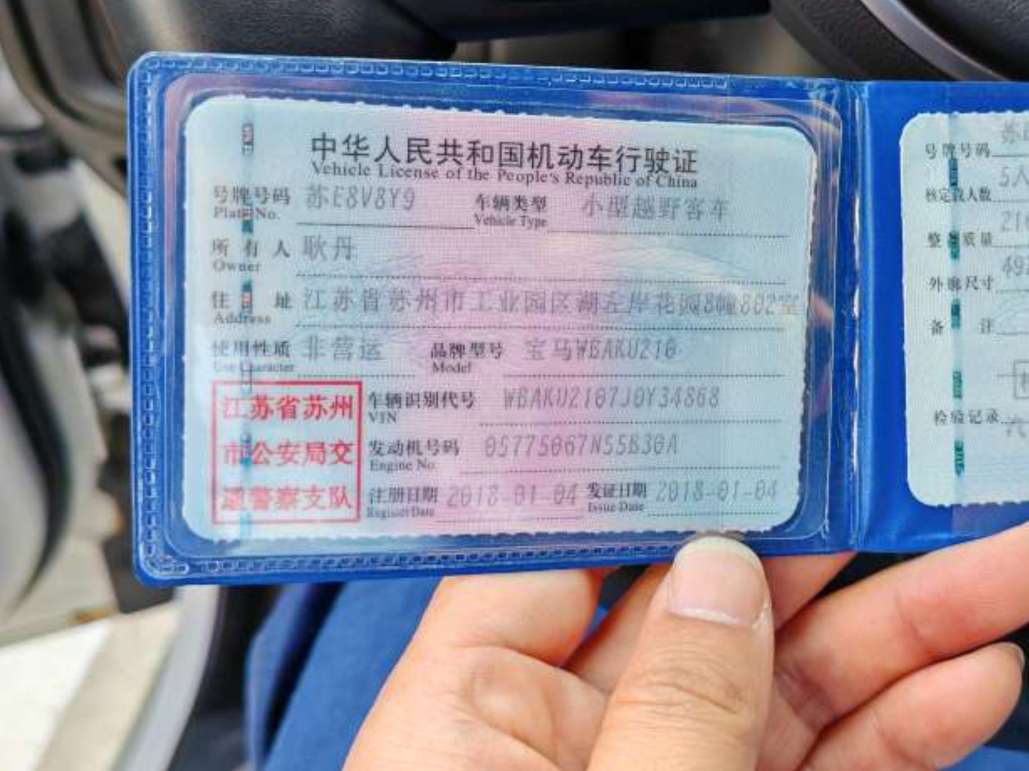 中华人民共和国机动车行驶证
Vehicle License of the People's Republic of China
号牌号码 苏E8V8Y9 车辆类型 小型越野客车
Plate No. Vehicle Type
所有人 耿丹
Owner
住址 江苏省苏州市工业园区湖左岸花园8幢802室
Address
使用性质 非营运 品牌型号 宝马WBAKU210
Use Character Model
车辆识别代号 WBAKU2107J0Y34868
VIN
发动机号码 05775067N55B30A
Engine No.
注册日期 2018-01-04 发证日期 2018-01-04
Register Date Issue Date
江苏省苏州
市公安局交
通警察支队
号牌号码 苏
核定载人数 5人
整备质量 21
外廓尺寸 49
备注
检验记录